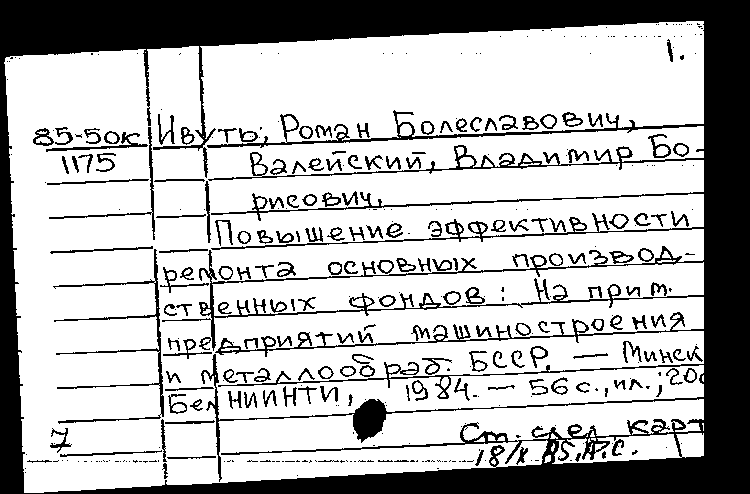 1.
85-5ок Ивуть, Роман Болеславович,
1175 Валейский, Владимир Бо-
рисович.
Повышение эффективности
ремонта основных производ-
ственных фондов: На прим.
предприятий машиностроения
и металлообраб. БССР. — Минск
БелНИИНТИ, 1984. — 56 с., ил.; 20
7 Ст. след. карт
18/X 85.